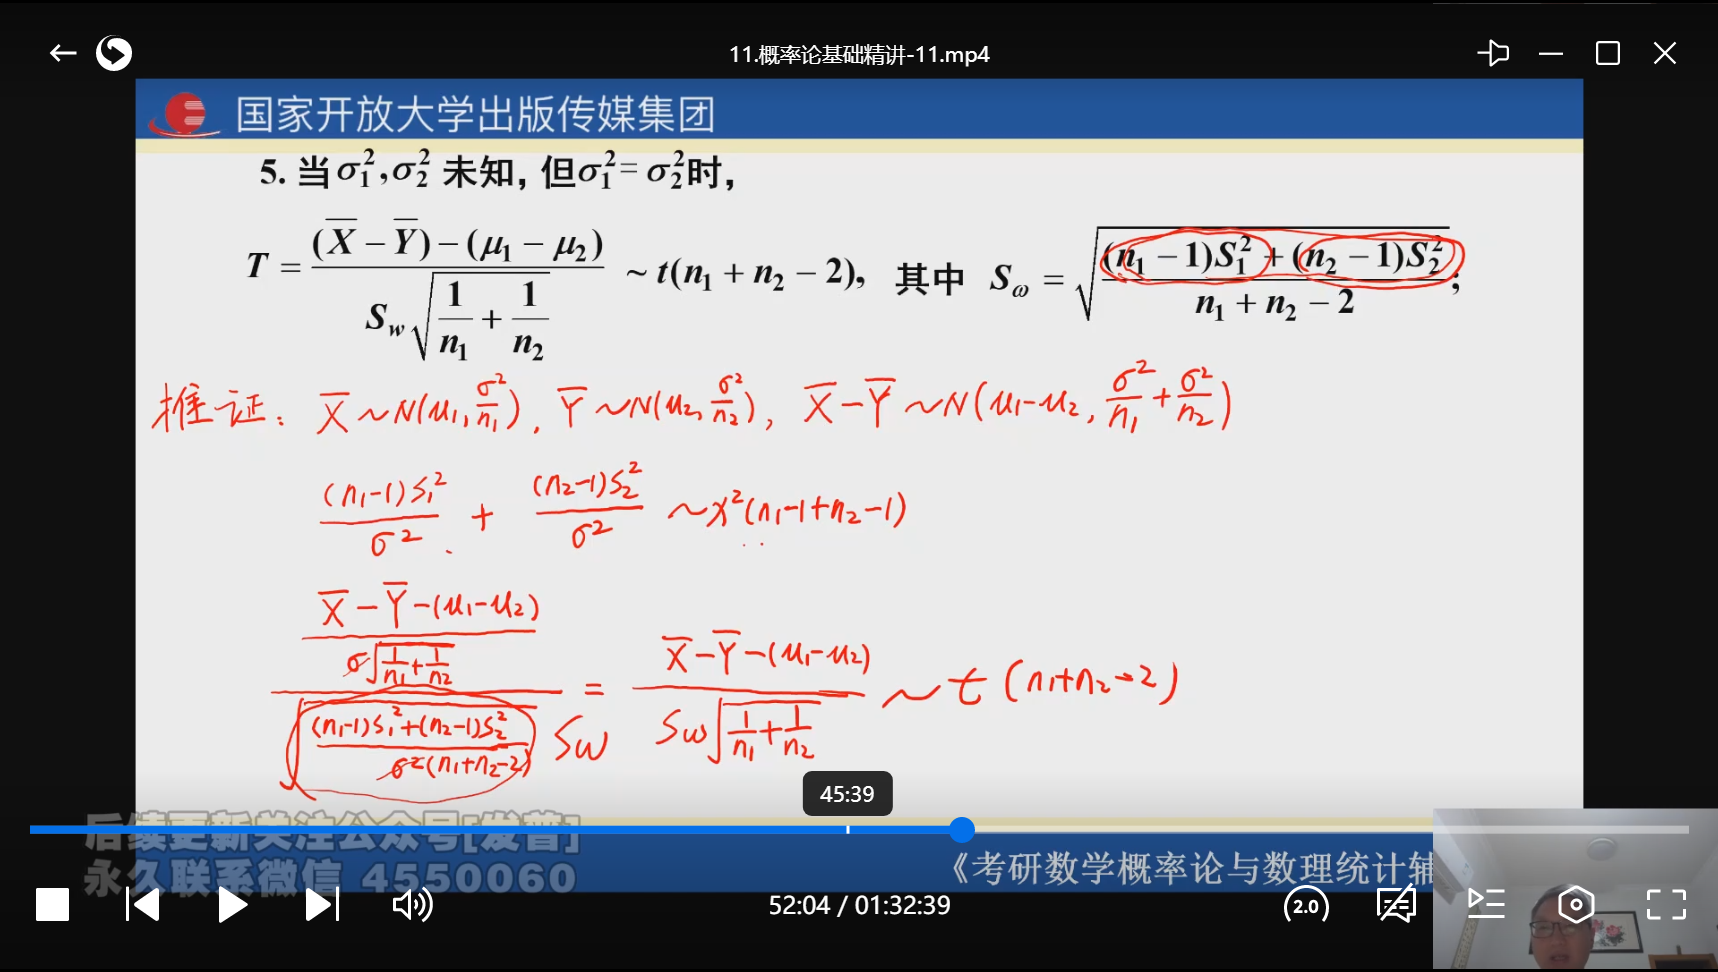 11.概率论基础精讲-11.mp4
国家开放大学出版传媒集团
5. 当 σ₁², σ₂² 未知, 但σ₁² = σ₂²时,
T = ((X̅ − Y̅) − (μ₁ − μ₂)) / (S_w √(1/n₁ + 1/n₂)) ~ t(n₁ + n₂ − 2), 其中 S_ω = √(((n₁ − 1)S₁² + (n₂ − 1)S₂²) / (n₁ + n₂ − 2));
推证: X̅ ~ N(μ₁, σ²/n₁), Y̅ ~ N(μ₂, σ²/n₂), X̅ − Y̅ ~ N(μ₁−μ₂, σ²/n₁ + σ²/n₂)
(n₁−1)S₁²/σ² + (n₂−1)S₂²/σ² ~ χ²(n₁−1+n₂−1)
((X̅ − Y̅ − (μ₁−μ₂)) / (σ√(1/n₁ + 1/n₂))) / √(((n₁−1)S₁² + (n₂−1)S₂²) / (σ²(n₁+n₂−2))) Sω = (X̅ − Y̅ − (μ₁−μ₂)) / (Sω√(1/n₁ + 1/n₂)) ~ t(n₁+n₂−2)
45:39
后续更新关注公众号[发普]
永久联系微信 4550060
《考研数学概率论与数理统计辅
52:04 / 01:32:39
2.0